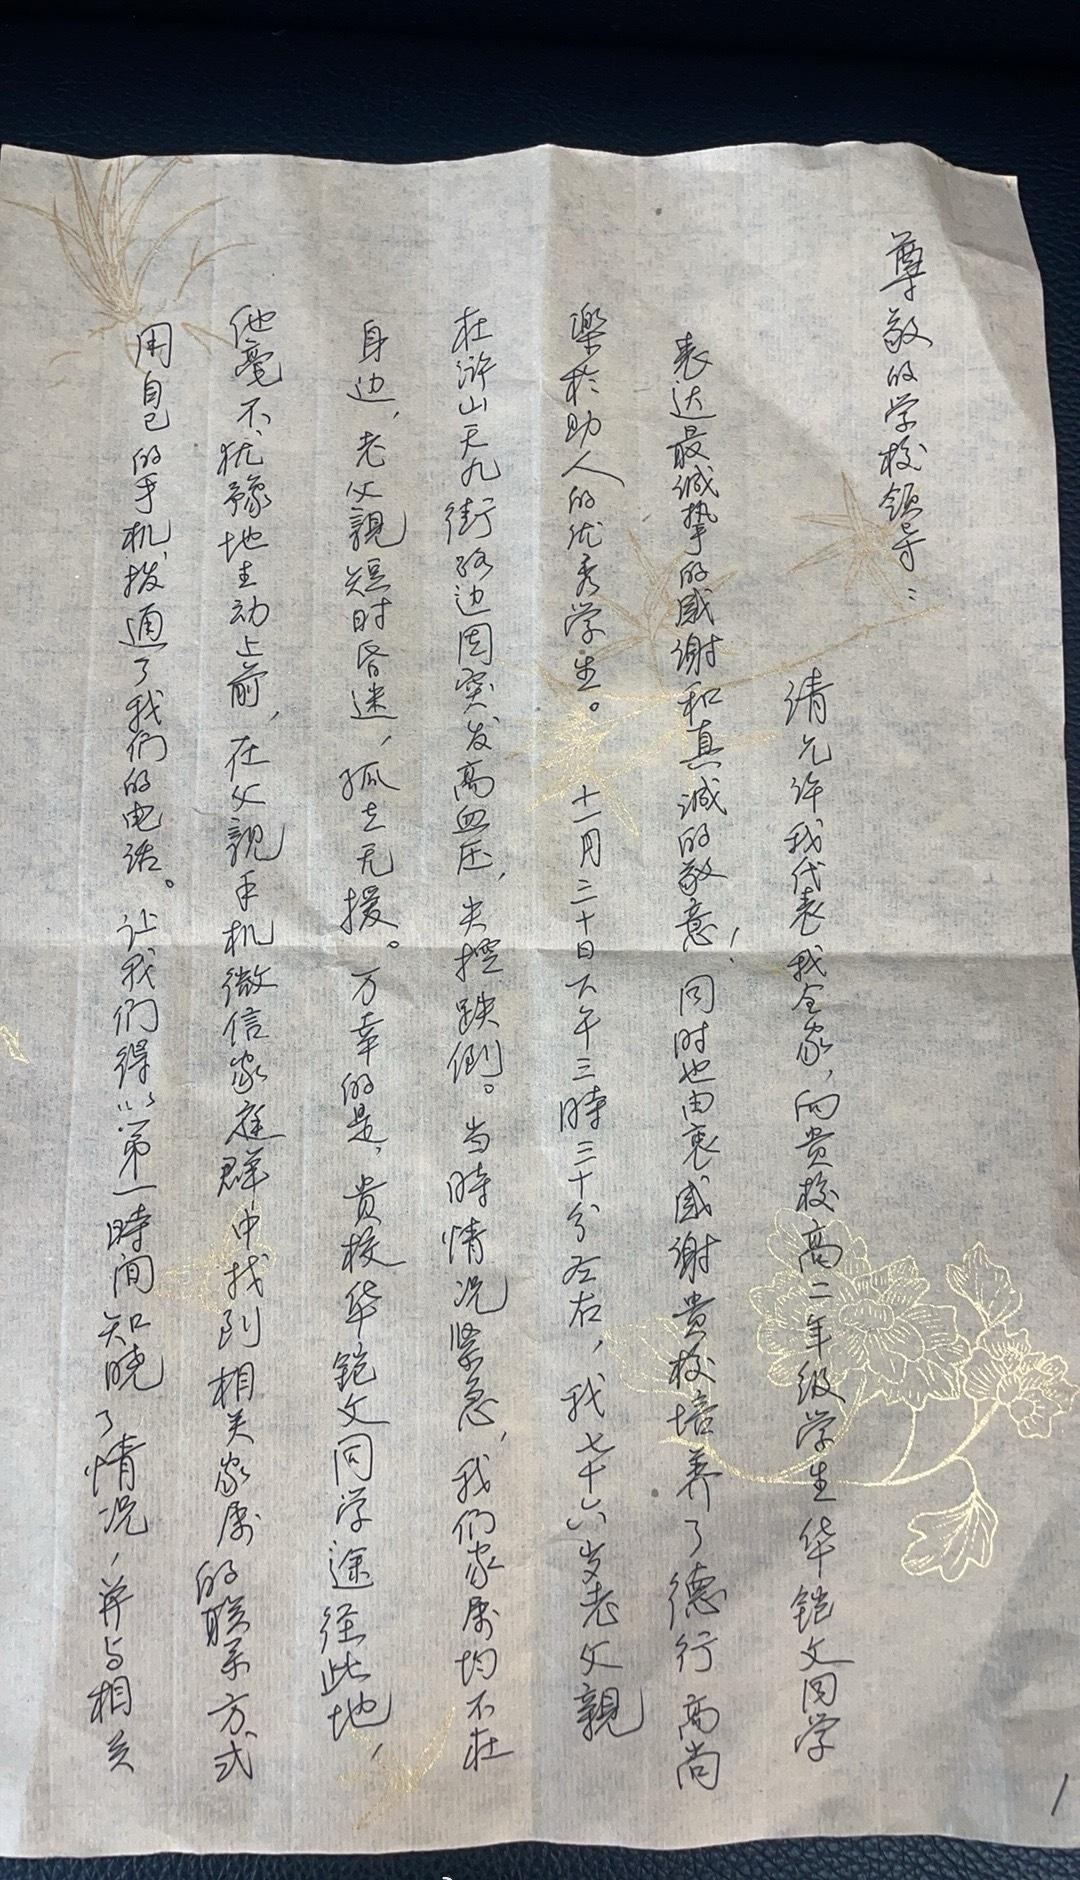 尊敬的学校领导：
请允许我代表我全家，向贵校高二年级学生华铠文同学
表达最诚挚的感谢和真诚的敬意！同时也由衷感谢贵校培养了德行高尚
樂於助人的优秀学生。十一月二十日下午三時三十分左右，我七十六岁老父親
在浒山天九街路边因突发高血压，失控跌倒。当時情况紧急，我们家属均不在
身边，老父親短时昏迷，孤立无援。万幸的是，贵校华铠文同学途径此地，
他毫不犹豫地主动上前，在父親手机微信家庭群中找到相关家属的联系方式
用自己的手机，拨通了我们的电话。让我们得以第一時间知晓了情况，并与相关
1